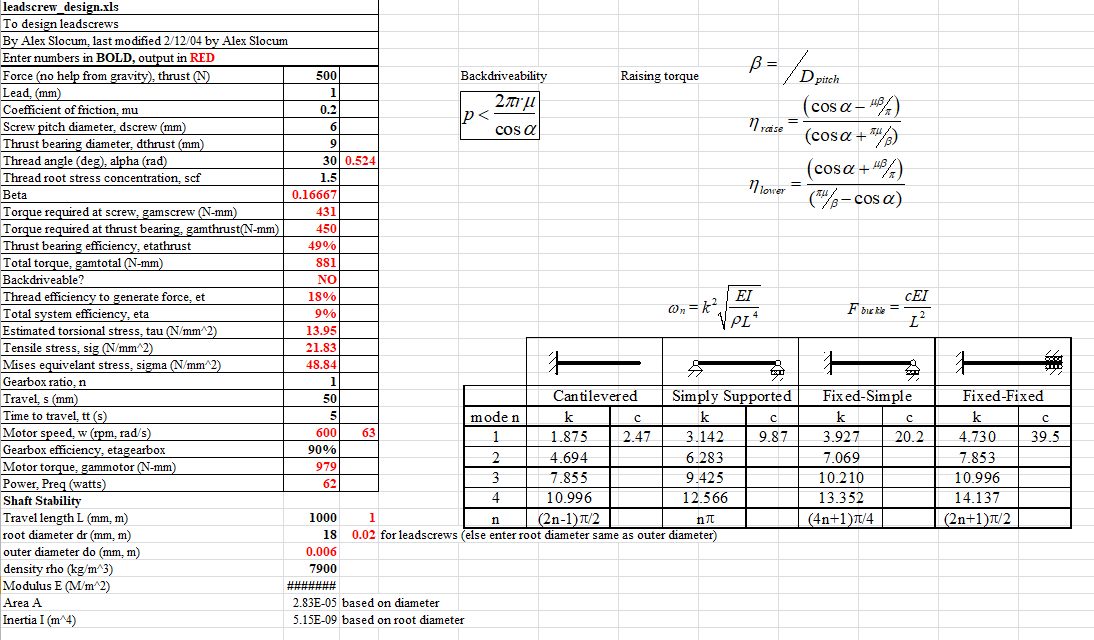 leadscrew_design.xls
To design leadscrews
By Alex Slocum, last modified 2/12/04 by Alex Slocum
Enter numbers in BOLD, output in RED
Force (no help from gravity), thrust (N) 500
Lead, (mm) 1
Coefficient of friction, mu 0.2
Screw pitch diameter, dscrew (mm) 6
Thrust bearing diameter, dthrust (mm) 9
Thread angle (deg), alpha (rad) 30 0.524
Thread root stress concentration, scf 1.5
Beta 0.16667
Torque required at screw, gamscrew (N-mm) 431
Torque required at thrust bearing, gamthrust(N-mm) 450
Thrust bearing efficiency, etathrust 49%
Total torque, gamtotal (N-mm) 881
Backdriveable? NO
Thread efficiency to generate force, et 18%
Total system efficiency, eta 9%
Estimated torsional stress, tau (N/mm^2) 13.95
Tensile stress, sig (N/mm^2) 21.83
Mises equivelant stress, sigma (N/mm^2) 48.84
Gearbox ratio, n 1
Travel, s (mm) 50
Time to travel, tt (s) 5
Motor speed, w (rpm, rad/s) 600 63
Gearbox efficiency, etagearbox 90%
Motor torque, gammotor (N-mm) 979
Power, Preq (watts) 62
Shaft Stability
Travel length L (mm, m) 1000 1
root diameter dr (mm, m) 18 0.02 for leadscrews (else enter root diameter same as outer diameter)
outer diameter do (mm, m) 0.006
density rho (kg/m^3) 7900
Modulus E (M/m^2) #######
Area A 2.83E-05 based on diameter
Inertia I (m^4) 5.15E-09 based on root diameter
Backdriveability
p < 2πrμ / cos α
Raising torque
β = / D pitch
η raise = (cos α − μβ/π) / (cos α + πμ/β)
η lower = (cos α + μβ/π) / (πμ/β − cos α)
ωn = k² √ EI / ρL⁴
F buckle = cEI / L²
Cantilevered Simply Supported Fixed-Simple Fixed-Fixed
mode n k c k c k c k c
1 1.875 2.47 3.142 9.87 3.927 20.2 4.730 39.5
2 4.694 6.283 7.069 7.853
3 7.855 9.425 10.210 10.996
4 10.996 12.566 13.352 14.137
n (2n-1)π/2 nπ (4n+1)π/4 (2n+1)π/2